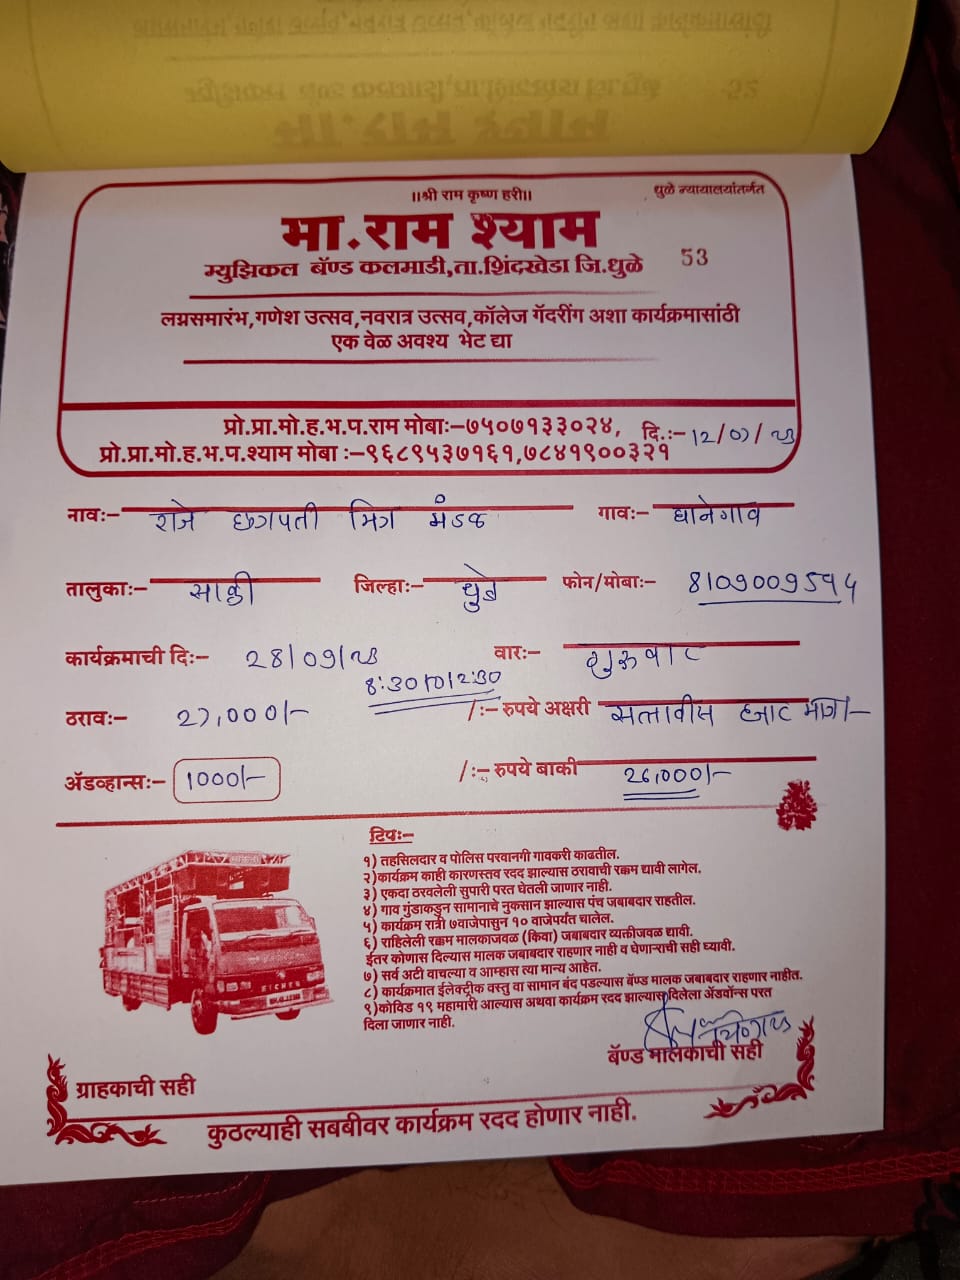 ।।श्री राम कृष्ण हरी।।
धुळे न्यायालयांतर्गत
भा.राम श्याम
म्युझिकल बॅण्ड कलमाडी,ता.शिंदखेडा जि.धुळे 53
लग्नसमारंभ,गणेश उत्सव,नवरात्र उत्सव,कॉलेज गॅदरींग अशा कार्यक्रमासांठी
एक वेळ अवश्य भेट द्या
प्रो.प्रा.मो.ह.भ.प.राम मोबाः-७५०७१३३०२४, दि.:-12/07/23
प्रो.प्रा.मो.ह.भ.प.श्याम मोबा :-९६८९५३७१६१,७८४१९००३२१
नावः- राजे छत्रपती मित्र मंडळ गावः- धानेगाव
तालुकाः- साक्री जिल्हाः- धुळे फोन/मोबाः- 8109009594
कार्यक्रमाची दिः- 28/09/23 वारः- शुक्रवार
8:30 12:30
ठरावः- 27,000/- /:- रुपये अक्षरी सत्तावीस हजार मात्र/-
ॲडव्हान्सः- 1000/- /:- रुपये बाकी 26,000/-
टिपः-
१) तहसिलदार व पोलिस परवानगी गावकरी काढतील.
२)कार्यक्रम काही कारणस्तव रदद झाल्यास ठरावाची रक्कम द्यावी लागेल.
३) एकदा ठरवलेली सुपारी परत घेतली जाणार नाही.
४) गाव गुंडाकडुन सामानाचे नुकसान झाल्यास पंच जबाबदार राहतील.
५) कार्यक्रम रात्री ७वाजेपासुन १० वाजेपर्यंत चालेल.
६) राहिलेली रक्कम मालकाजवळ (किवा) जबाबदार व्यक्तीजवळ द्यावी.
ईतर कोणास दिल्यास मालक जबाबदार राहणार नाही व घेणाऱ्याची सही घ्यावी.
७) सर्व अटी वाचल्या व आम्हास त्या मान्य आहेत.
८) कार्यक्रमात ईलेक्ट्रीक वस्तु वा सामान बंद पडल्यास बॅण्ड मालक जबाबदार राहणार नाहीत.
९)कोविड १९ महामारी आल्यास अथवा कार्यक्रम रदद झाल्यास दिलेला ॲडवॉन्स परत
दिला जाणार नाही.
EICHER
बॅण्ड मालकाची सही
ग्राहकाची सही
कुठल्याही सबबीवर कार्यक्रम रदद होणार नाही.